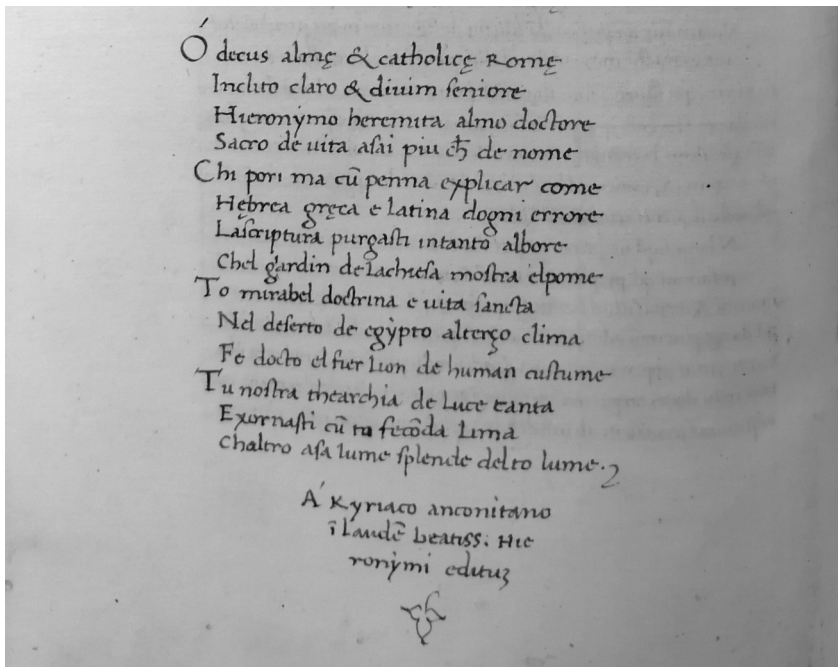 Ó decus almę & catholicę Romę
Inclito claro & diuim seniore
Hieronẏmo heremita almo doctore
Sacro de uita asai piu ch̄ de nome
Chi pori ma cū penna explicar come
Hębrea gręca e latina dogni errore
Lascriptura purgasti intanto albore
Chel g̀ardin de lachiesa mostra elpome
To mirabel doctrina e uita sancta
Nel deserto de egẏpto alterço clima
Fe docto el fier Lion de human custume
Tu nostra thearchia de Luce tanta
Exornasti cū tu fecōda Lima
Chaltro asa lume splende delto lume.
A Kyriaco anconitano
ī laudē beatiss. Hie
ronẏmi edituȝ